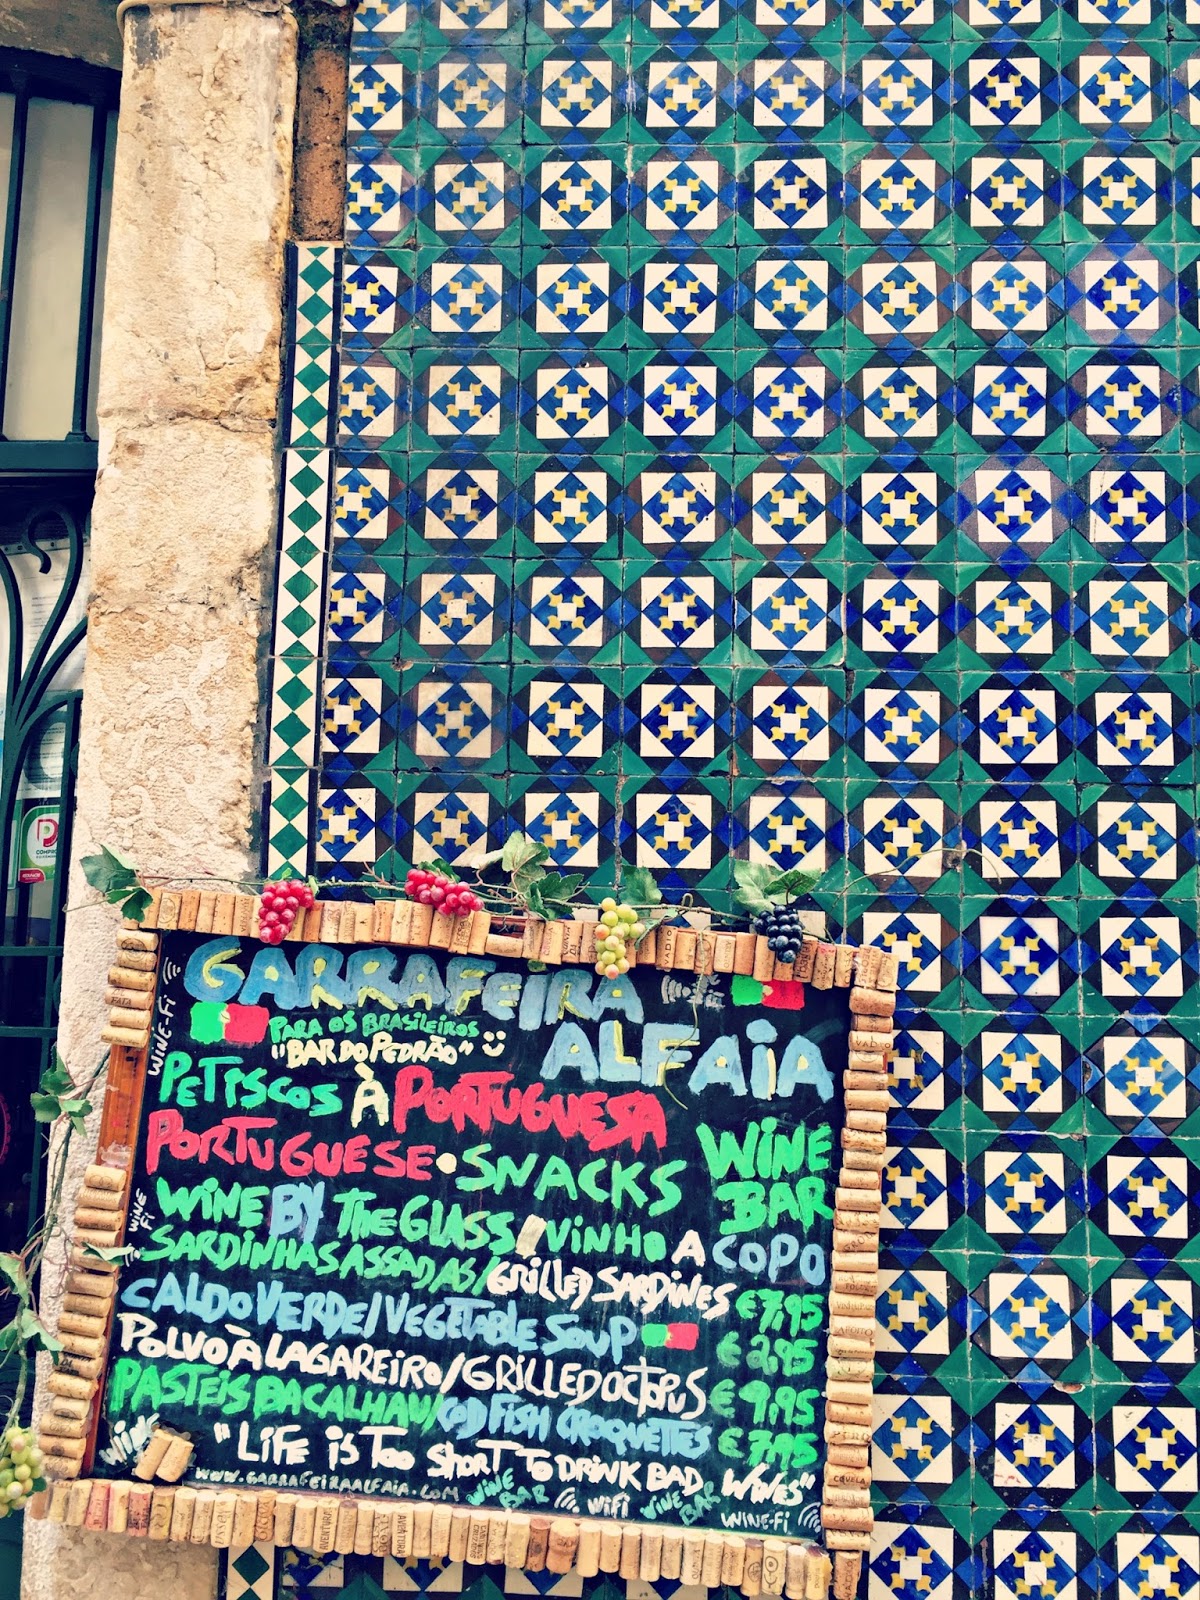 GARRAFEIRA
ALFAIA
WINE-Fi
PARA OS BRASILEIROS
"BAR DO PEDRÃO"
PETISCOS À PORTUGUESA
PORTUGUESE • SNACKS
WINE BAR
WINE BY THE GLASS/VINHO A COPO
WINE Fi
SARDINHAS ASSADAS/GRILLED SARDINES €7,95
CALDO VERDE/VEGETABLE SOUP €2,95
POLVO À LAGAREIRO/GRILLED OCTOPUS €9,95
PASTEIS BACALHAU/COD FISH CROQUETTES €7,95
WINE
"LIFE IS TOO SHORT TO DRINK BAD WINES"
WWW.GARRAFEIRAALFAIA.COM
WINE BAR
WIFI
WINE BAR
WINE-Fi